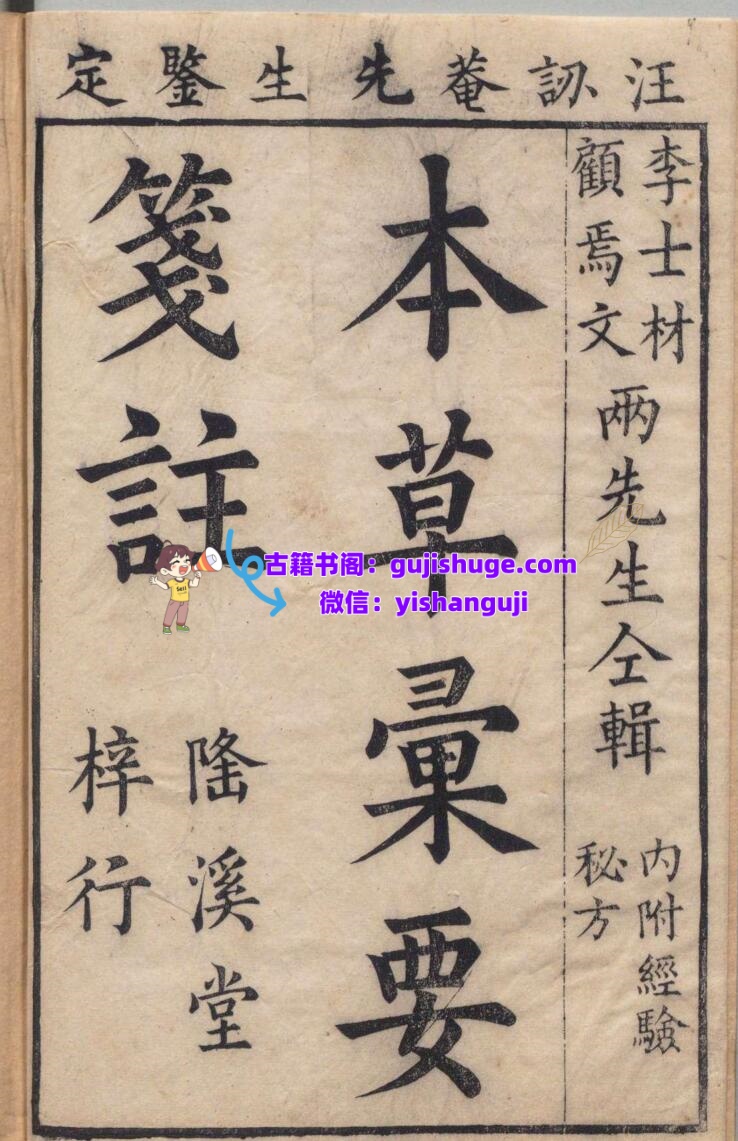 汪訒菴先生鑒定
李士材
顧焉文
兩先生仝輯
內附經驗
秘方
本草彙要
箋註
隆溪堂
梓行
古籍书阁：gujishuge.com
微信：yishanguji